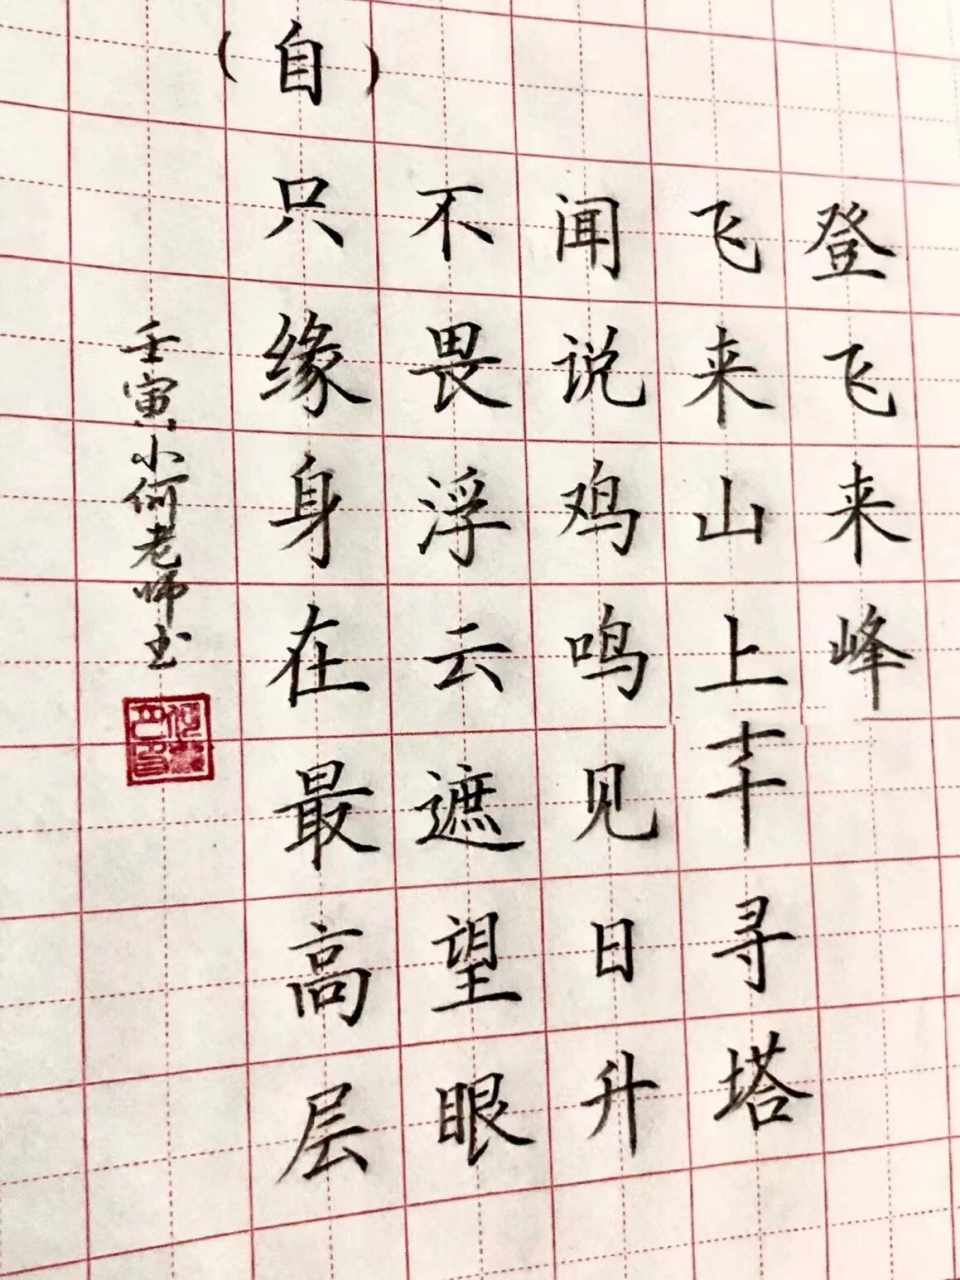 登飞来峰
飞来山上寻塔
闻说鸡鸣见日升
不畏浮云遮望眼
（自）只缘身在最高层
壬寅小何老师书